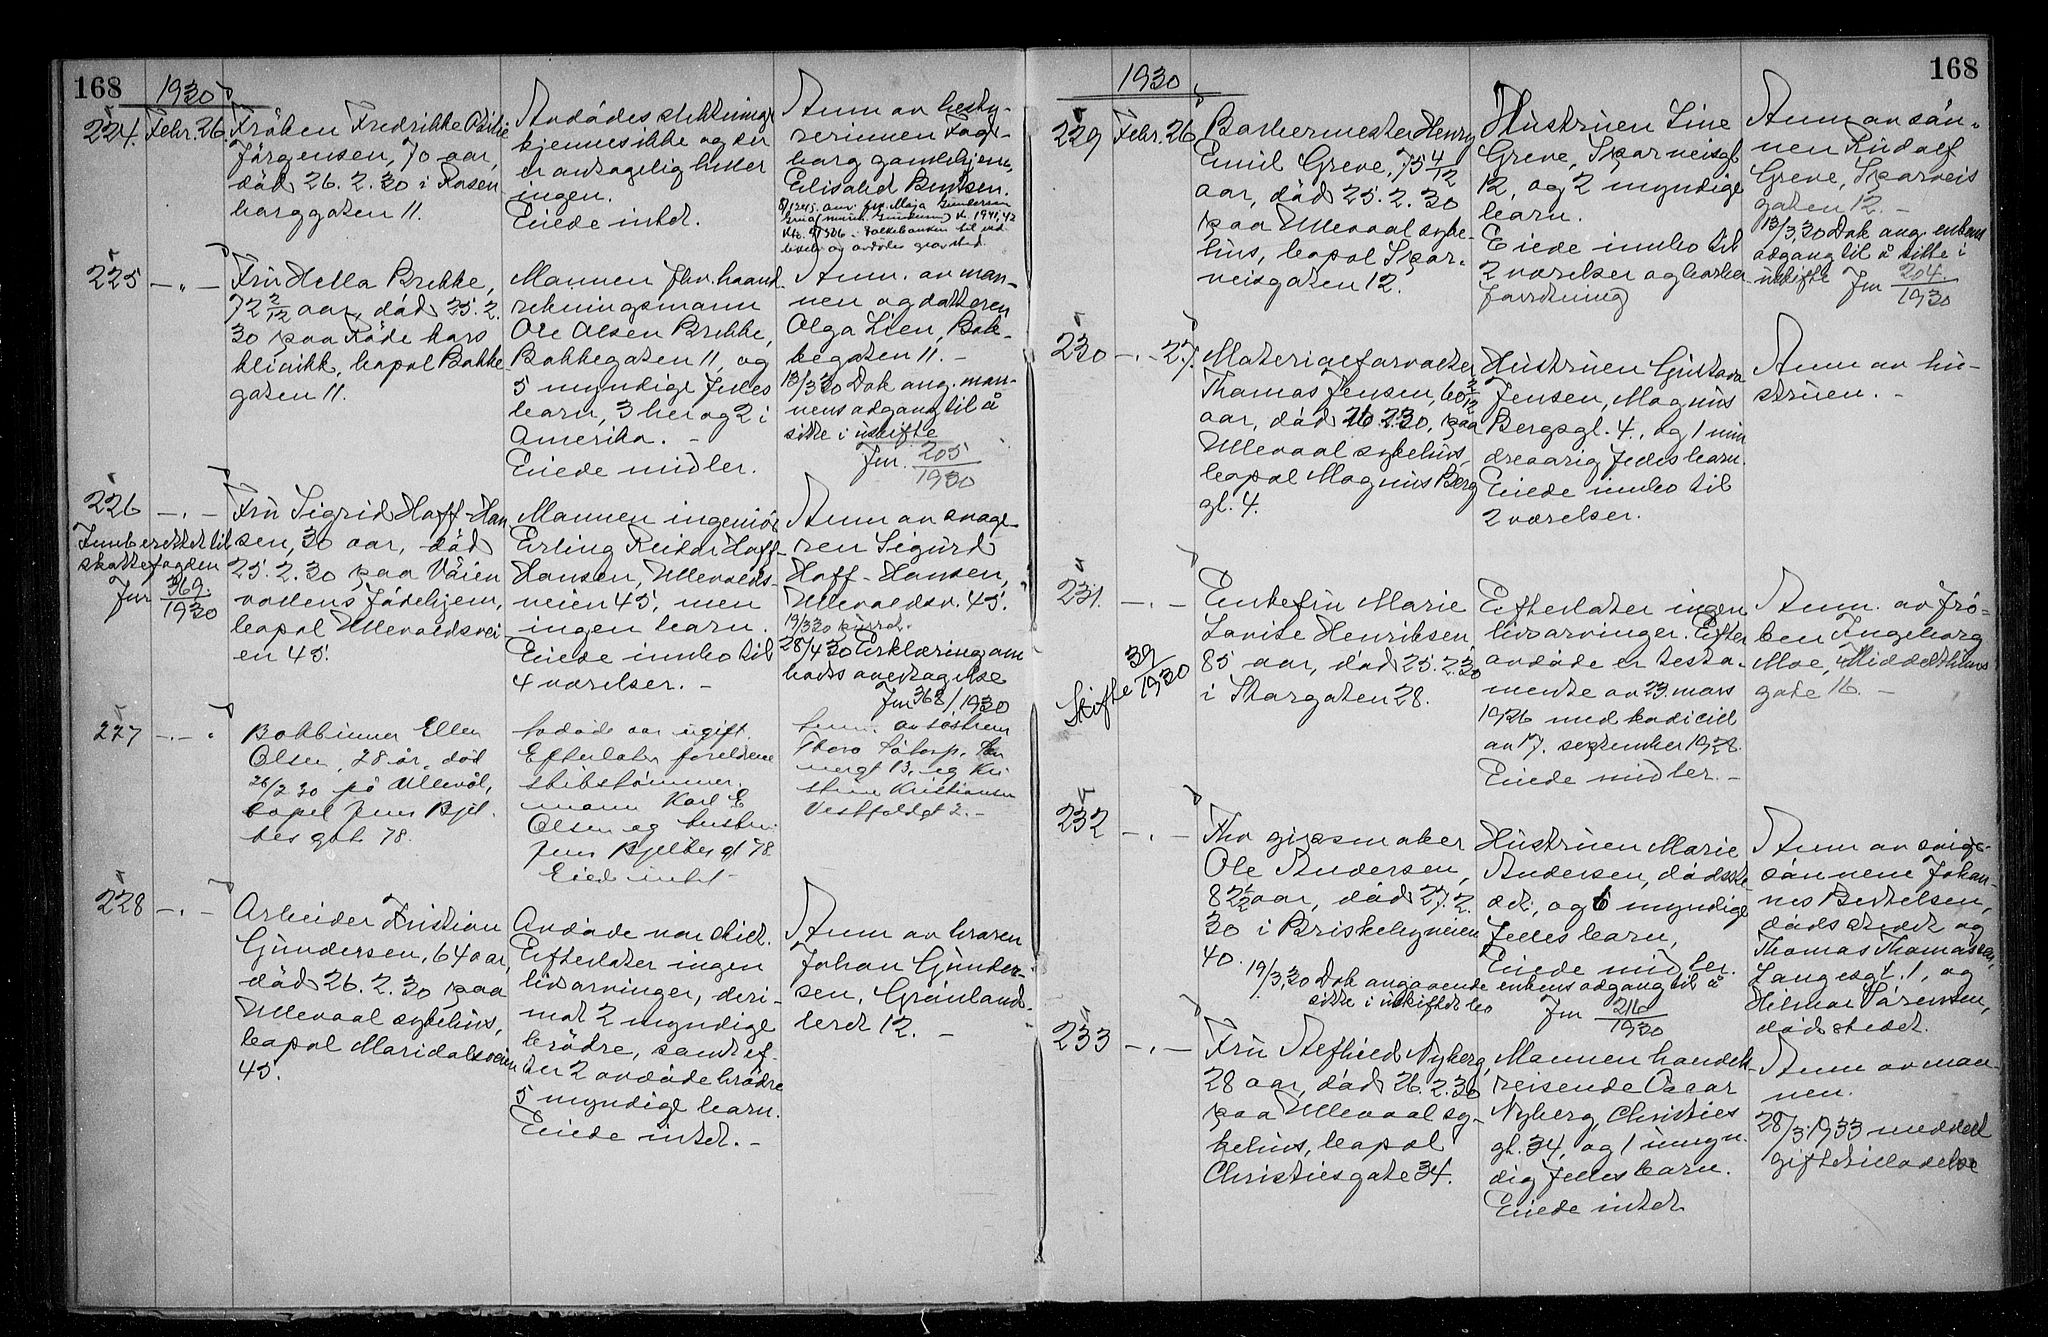 168
1930
224. Febr. 26.
Fröken Fredrikke
Jörgensen, 70 aar,
död 26.2.30 i Rosen-
borggaten 11.
Avdödes slektninge
kjennes ikke og der
er antagelig heller
ingen.
Eiede intet.
Anm av besty-
rerinnen Fager-
borg gamlehjem,
Elisabed Berntsen.
225 —„—
Fru Hella Brekke,
72 2/12 aar, död 25.2.
30 paa Röde kors
klinikk, bopæl Bakke-
gaten 11.
Mannen fhv. haand-
rekningsmann
Ole Olsen Brekke,
Bakkegaten 11, og
5 myndige felles
barn, 3 her og 2 i
Amerika. –
Eiede midler.
Anm. av man-
nen og datteren
Olga Lien, Bak-
kegaten 11. –
13/3 30 Dok ang. man-
nens adgang til å
sitte i uskifte
Jnr. 205/1930
226 —„—
Innberettet til
skattefogden
Jnr 369/1930
Fru Sigrid Hoff-Han
sen, 30 aar, död
25.2.30 paa Vöien
vollens födehjem,
bopæl Ullevoldsvei
en 45.
Mannen ingeniör
Erling Reidar Hoff-
Hansen, Ullevolds-
veien 45, men
ingen barn.
Eiede innbo til
4 værelser. –
Anm av svoge-
ren Sigurd
Hoff-Hansen,
Ullevoldsv. 45.
19/3 30
28/4 30 Erklæring om
bods overtagelse
Jnr 368/1930
227 —„—
Bokbinner Ellen
Olsen, 28 år, död
26/2 30 på Ullevål,
bopel Jens Bjel-
kes gate 78.
Avdøde var ugift.
Efterlater foreldrene
skibstømmer-
mann Karl E
Olsen og hustru
Jens Bjelkes gt 78.
Eied intet –
Anm. av søstrene
Thora
13, og Kri-
stine Kristiansen
Vestfoldgt 2. –
228 —„—
Arbeider Kristian
Gundersen, 64 aar,
död 26.2.30 paa
Ullevaal sykehus,
bopæl Maridalsveien
45.
Avdöde var skilt.
Efterlater ingen
livsarvinger, deri-
mot 2 myndige
brödre, samt ef-
ter 2 avdöde brödre
5 myndige barn.
Eiede intet. –
Anm av broren
Johan Gunder-
sen, Grönland-
leret 12. –
168
1930
229 Febr. 26
Barbermester Henry
Emil Greve, 75 4/12
aar, död 25.2.30
paa Ullevaal syke-
hus, bopæl Spor-
veisgaten 12.
Hustruen Line
Greve, Sporveisgt
12, og 2 myndige
barn.
Eiede innbo til
2 værelser og barber
forretning
Anm av sön-
nen Rudolf
Greve, Sporveis
gaten 12. –
13/3.30 Dok ang. enkens
adgang til å sitte i
uskifte Jnr 204/1930
230 —„— 27.
Materialforvalter
Thomas Jensen, 60 2/12
aar, död 26.2.30, paa
Ullevaal sykehus,
bopæl Magnus Berg
gt. 4.
Hustruen Gustava
Jensen, Magnus
Bergsgt. 4., og 1 min
dreaarig felles barn.
Eiede innbo til
2 værelser.
Anm av hu-
struen. –
231. —„—
Skifte 39/1930
Enkefru Marie
Lovise Henriksen,
85 aar, död 25.2.30
i Thorgaten 28.
Efterlater ingen
livsarvinger. Efter
avdöde er testa-
mente av 23 mars
1926 med kodicill
av 17. september 1928.
Eiede midler. –
Anm. av frö-
ken Ingeborg
Moe, Middelthuns
gate 16. –
232 —„—
Fhv gipsmaker
Ole Andersen,
82 1/2 aar, död 27.2.
30 i Briskebyveien
40.
Hustruen Marie
Andersen, dödsste-
det, og 6 myndige
felles barn,
Eiede midler.
19/3.30 Dok angaaende enkens adgang til å
sitte i uskiftet bo Jnr 216/1930
Anm av svige-
sönnene Johan-
nes Bertelsen,
dödsstedet og
Thomas Thomassen,
Langesgt. 1, og
Hilmar Sörensen,
dödsstedet.
233 —„—
Fru Nyberg,
28 aar, död 26.2.30
paa Ullevaal sy-
kehus, bopæl
Christiesgate 34.
Mannen handels-
reisende Oscar
Nyberg, Christies
gt. 34, og 1 umyn-
dig felles barn.
Eiede intet
Anm av man-
nen.
28/3.1933 meddelt
giftetilladelse